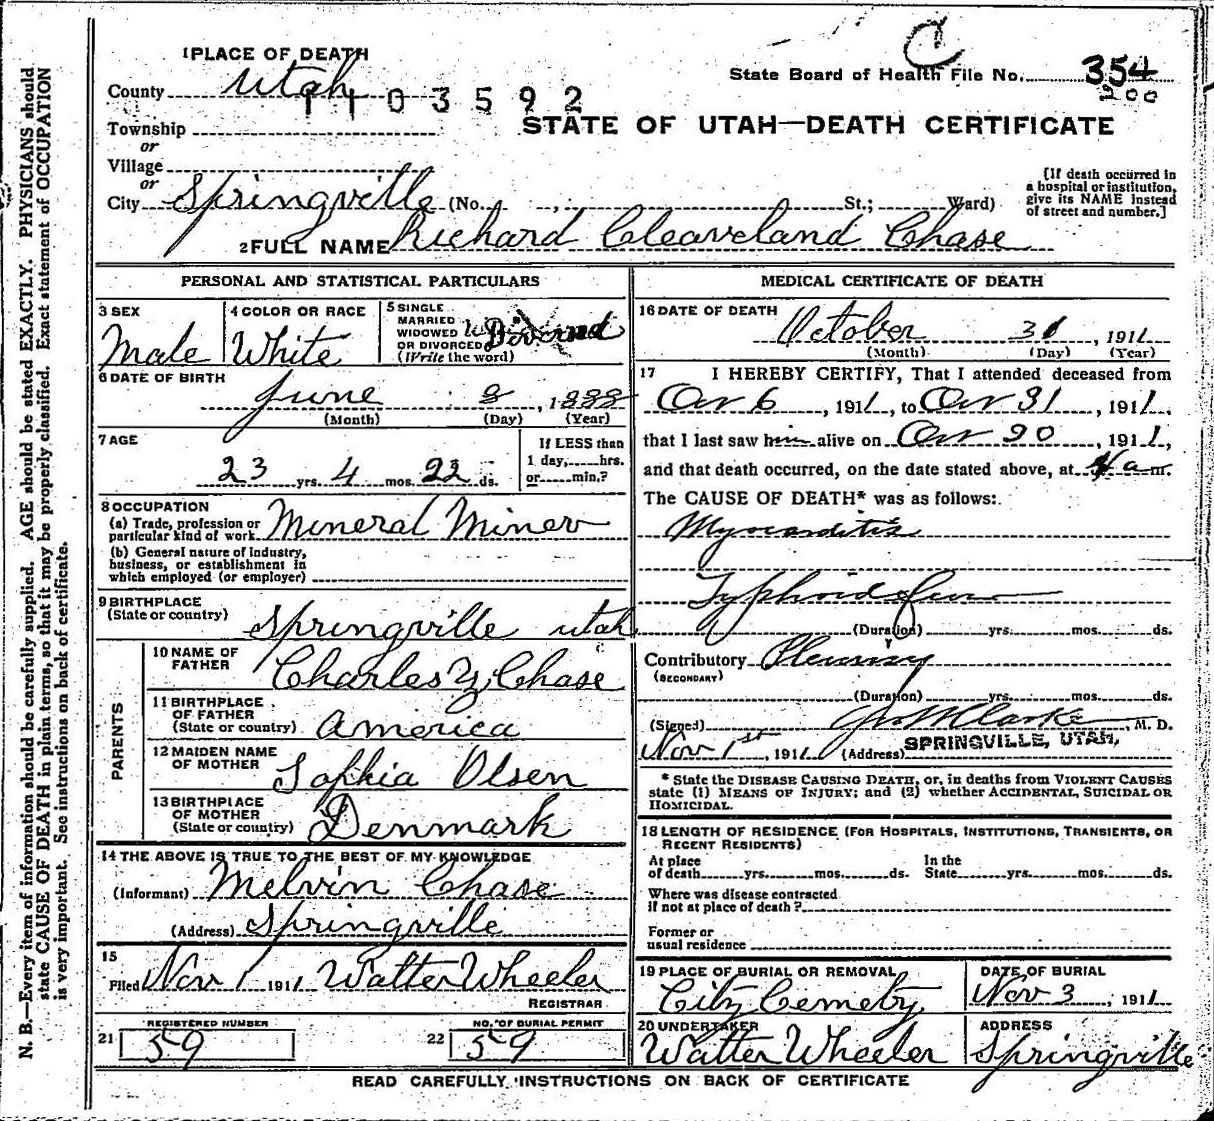 1 PLACE OF DEATH
County Utah
1103592
State Board of Health File No. 354
STATE OF UTAH—DEATH CERTIFICATE
Township
or
Village
or
City Springville (No. , St.; Ward)
[If death occurred in a hospital or institution, give its NAME instead of street and number.]
2 FULL NAME Richard Cleaveland Chase
PERSONAL AND STATISTICAL PARTICULARS
3 SEX
Male
4 COLOR OR RACE
White
5 SINGLE
MARRIED
WIDOWED
OR DIVORCED
(Write the word)
Divorced
6 DATE OF BIRTH
June 8, 1888
(Month) (Day) (Year)
7 AGE
23 yrs. 4 mos. 22 ds.
If LESS than
1 day, hrs.
or min.?
8 OCCUPATION
(a) Trade, profession or
particular kind of work Mineral Miner
(b) General nature of industry,
business, or establishment in
which employed (or employer)
9 BIRTHPLACE
(State or country) Springville Utah
PARENTS
10 NAME OF
FATHER Charles Y Chase
11 BIRTHPLACE
OF FATHER
(State or country) America
12 MAIDEN NAME
OF MOTHER Sophia Olsen
13 BIRTHPLACE
OF MOTHER
(State or country) Denmark
14 THE ABOVE IS TRUE TO THE BEST OF MY KNOWLEDGE
(Informant) Melvin Chase
(Address) Springville
15
Filed Nov 1 1911 Walter Wheeler
REGISTRAR
REGISTERED NUMBER
21 59
NO. OF BURIAL PERMIT
22 59
MEDICAL CERTIFICATE OF DEATH
16 DATE OF DEATH
October 31, 1911
(Month) (Day) (Year)
17 I HEREBY CERTIFY, That I attended deceased from
6, 1911, to 31, 1911,
that I last saw him alive on 1911,
and that death occurred, on the date stated above, at 4 a m.
The CAUSE OF DEATH* was as follows:
Myocarditis
Typhoid fever
(Duration) yrs. mos. ds.
Contributory Pleurisy
(SECONDARY)
(Duration) yrs. mos. ds.
(Signed) Clarke, M. D.
Nov 1st, 1911 (Address) SPRINGVILLE, UTAH,
* State the DISEASE CAUSING DEATH, or, in deaths from VIOLENT CAUSES
state (1) MEANS OF INJURY; and (2) whether ACCIDENTAL, SUICIDAL OR
HOMICIDAL.
18 LENGTH OF RESIDENCE (FOR HOSPITALS, INSTITUTIONS, TRANSIENTS, OR
RECENT RESIDENTS)
At place
of death yrs. mos. ds.
In the
State yrs. mos. ds.
Where was disease contracted
if not at place of death?
Former or
usual residence
19 PLACE OF BURIAL OR REMOVAL
City Cemetry
DATE OF BURIAL
Nov 3, 1911
20 UNDERTAKER
Walter Wheeler
ADDRESS
Springville
READ CAREFULLY INSTRUCTIONS ON BACK OF CERTIFICATE
N. B.—Every item of information should be carefully supplied. AGE should be stated EXACTLY. PHYSICIANS should
state CAUSE OF DEATH in plain terms, so that it may be properly classified. Exact statement of OCCUPATION
is very important. See instructions on back of certificate.